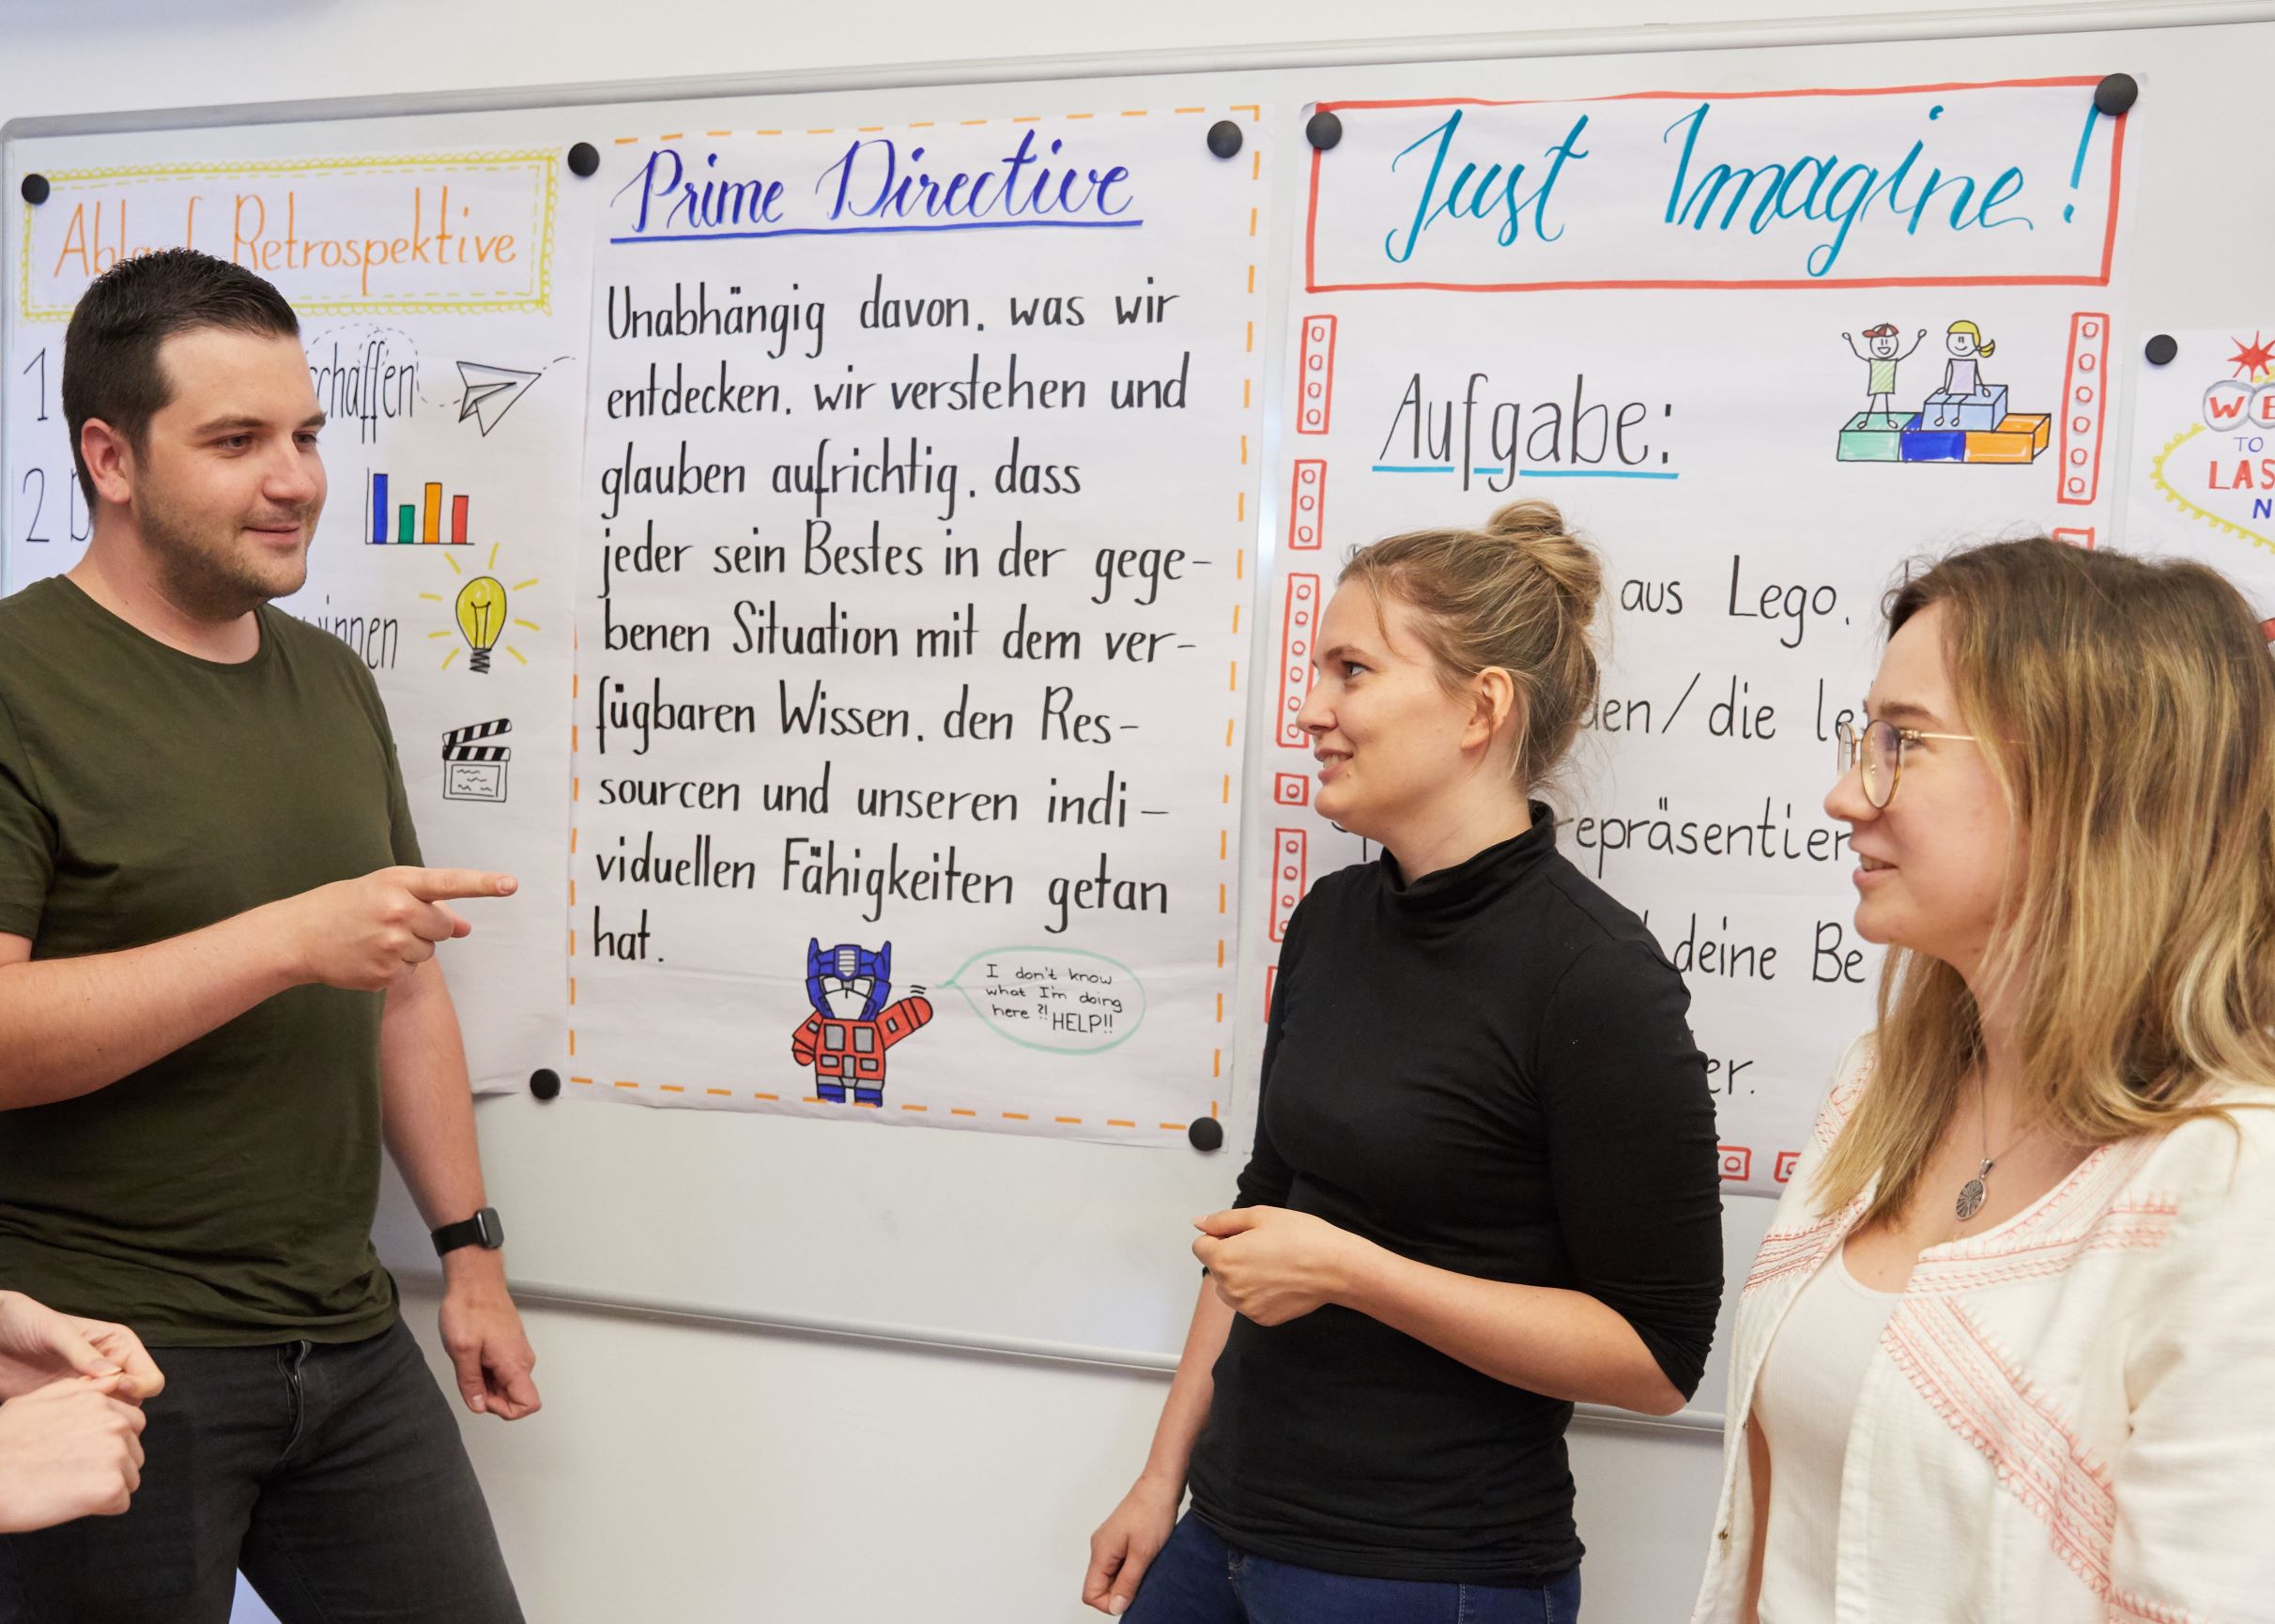 Ablauf Retrospektive
1
2
Prime Directive
Unabhängig davon, was wir
entdecken, wir verstehen und
glauben aufrichtig, dass
jeder sein Bestes in der gege-
benen Situation mit dem ver-
fügbaren Wissen, den Res-
sourcen und unseren indi-
viduellen Fähigkeiten getan
hat.
I don't know
what I'm doing
here ?!
HELP!!
Just Imagine!
Aufgabe:
aus Lego,
die
deine Be
TO